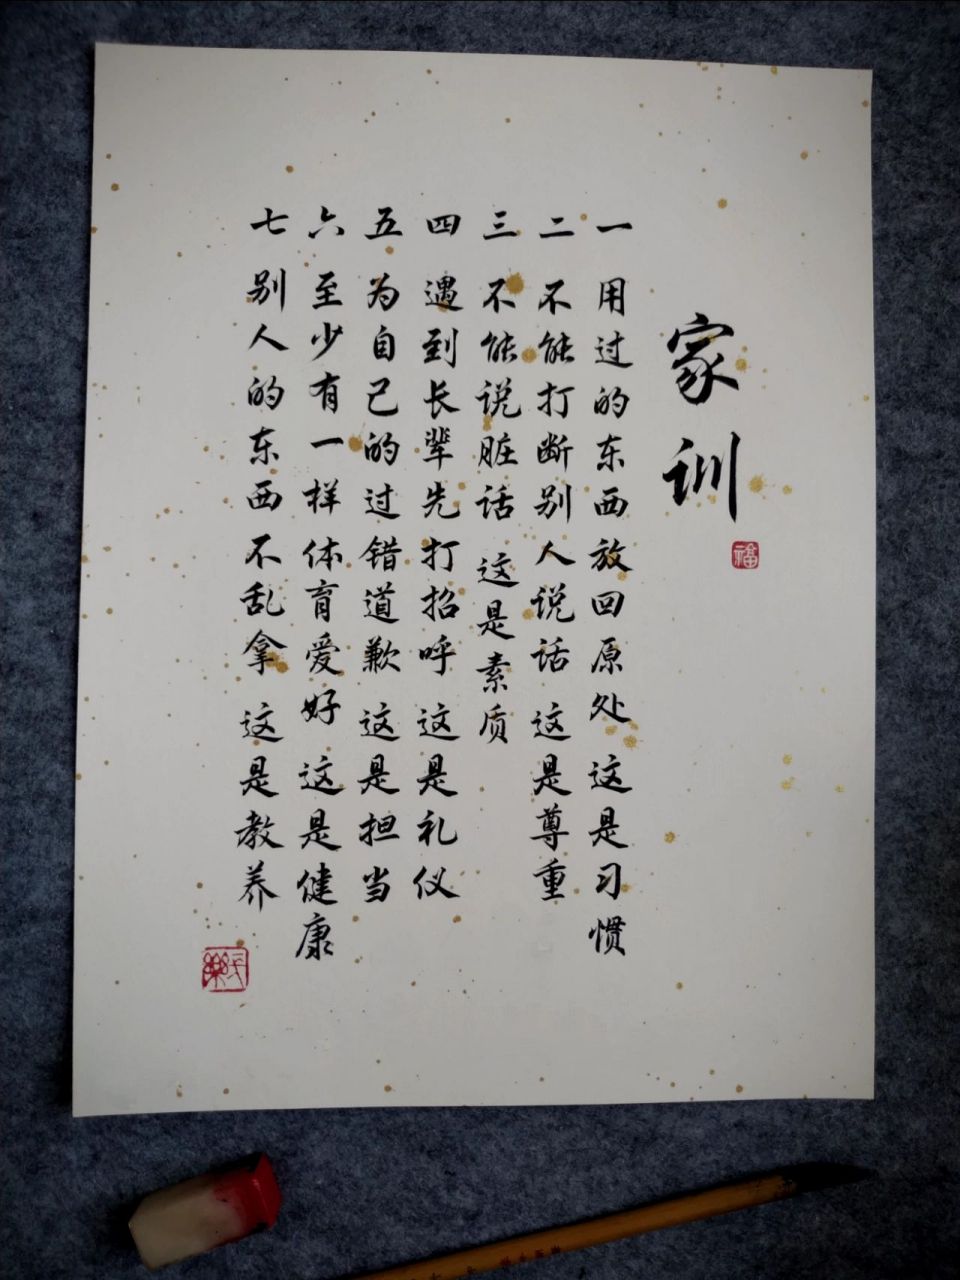 家训
福
一 用过的东西放回原处 这是习惯
二 不能打断别人说话 这是尊重
三 不能说脏话 这是素质
四 遇到长辈先打招呼 这是礼仪
五 为自己的过错道歉 这是担当
六 至少有一样体育爱好 这是健康
七 别人的东西不乱拿 这是教养